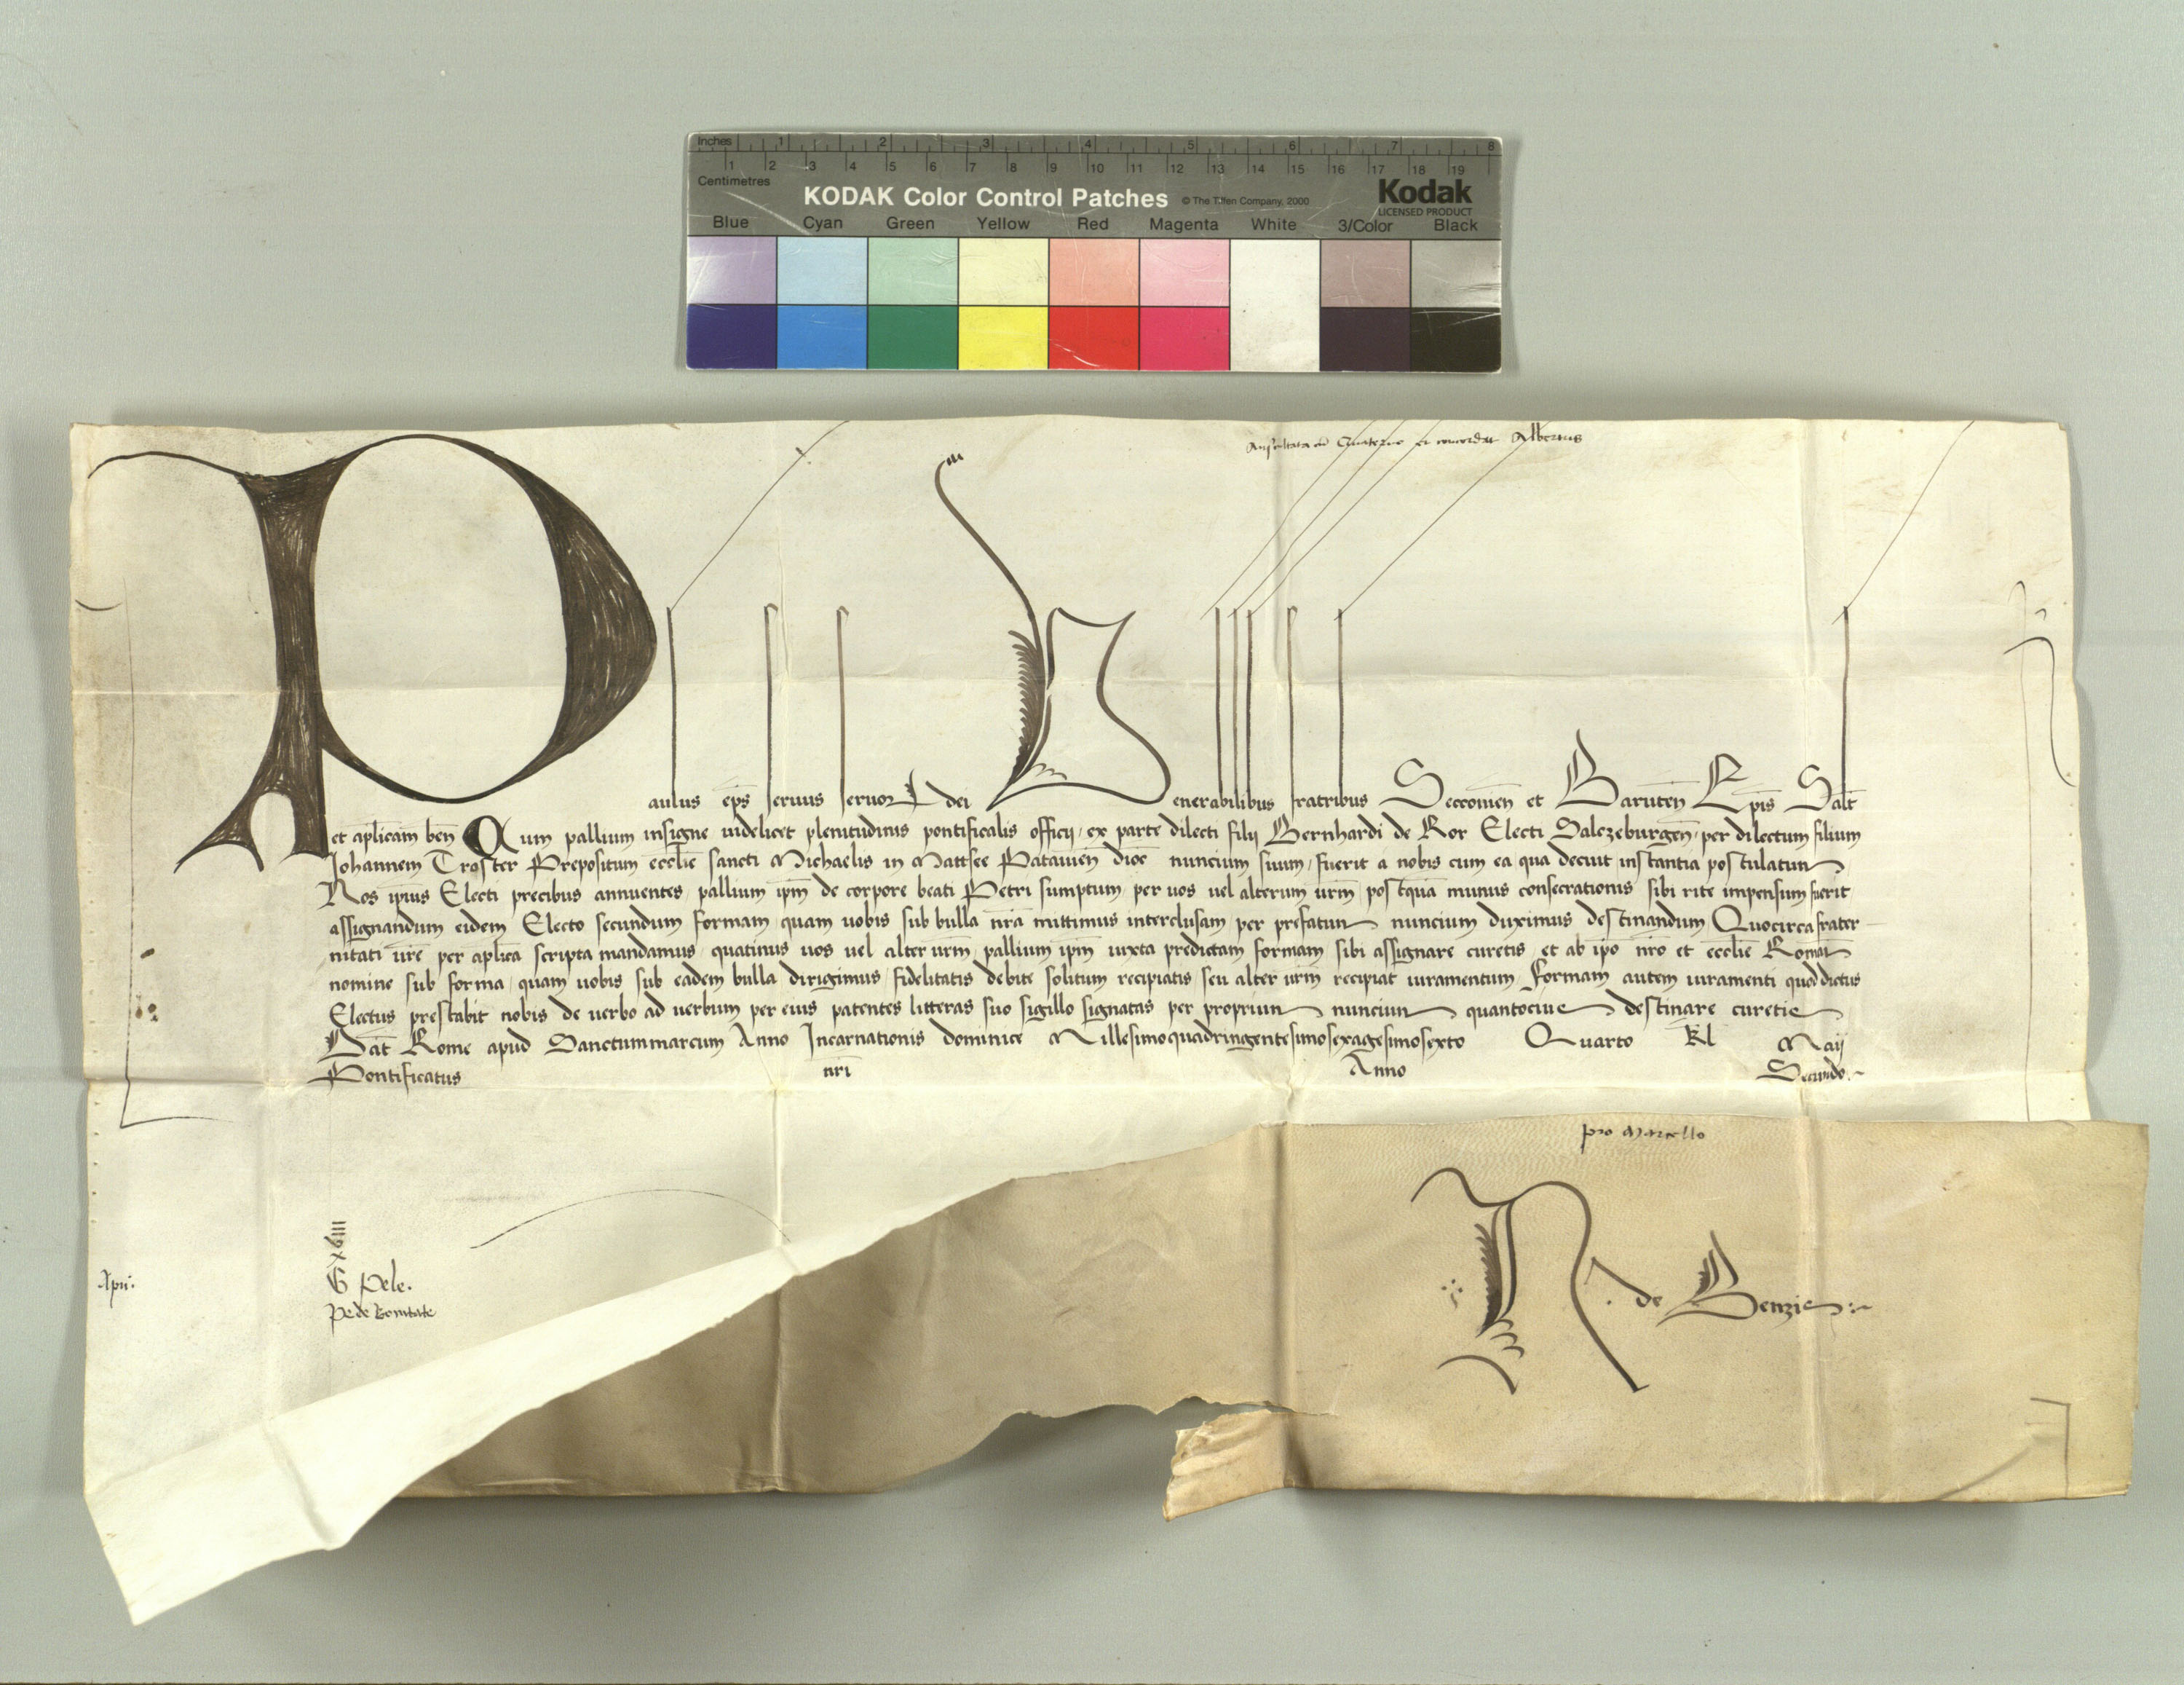 Inches 1 2 3 4 5 6 7 8
1 2 3 4 5 6 7 8 9 10 11 12 13 14 15 16 17 18 19
Centimetres
KODAK Color Control Patches © The Tiffen Company, 2000 Kodak
LICENSED PRODUCT
Blue Cyan Green Yellow Red Magenta White 3/Color Black
Albertus
Paulus ep̄s seruus seruorꝝ dei Venerabilibus fratribus Secconien̄ et Baruten̄ Ep̄is Sal̄t
et apl̄icam ben̄ Cum pallium insigne uidelicet plenitudinis pontificalis officij, ex parte dilecti filij Bernhardi de Ror Electi Salczeburgen̄, per dilectum filium
Johannem Troster Prepositum eccl̄ie sancti Michaelis in Mattsee Patauien̄ dioc̄ nuncium suum, fuerit a nobis cum ea qua decuit instantia postulatum
Nos ip̄ius Electi precibus annuentes, pallium ip̄m de corpore beati Petri sumptum, per uos uel alterum ur̄m postquā munus consecrationis sibi rite impensum fuerit
assignandum eidem Electo secundum formam, quam uobis sub bulla nr̄a mittimus interclusam per prefatum nuncium duximus destinandum Quocirca frater
nitati ur̄e per apl̄ica scripta mandamus, quatinus uos uel alter ur̄m, pallium ip̄m iuxta predictam formam sibi assignare curetis, et ab ip̄o nr̄o et eccl̄ie Roman̄
nomine sub forma, quam uobis sub eadem bulla dirigimus, fidelitatis debite solitum recipiatis seu alter ur̄m recipiat iuramentum Formam autem iuramenti quod dictus
Electus prestabit nobis de uerbo ad uerbum per eius patentes litteras suo sigillo signatas per proprium nuncium quantocius destinare curetis
Dat̄ Rome apud Sanctummarcum Anno Incarnationis dominice Millesimoquadringentesimosexagesimosexto Quarto kl̄ Maij
Pontificatus nr̄i Anno Secundo.~
pro Marcello
N. de Benzis:~
xviii
G Pele.
Pe de Bonitate